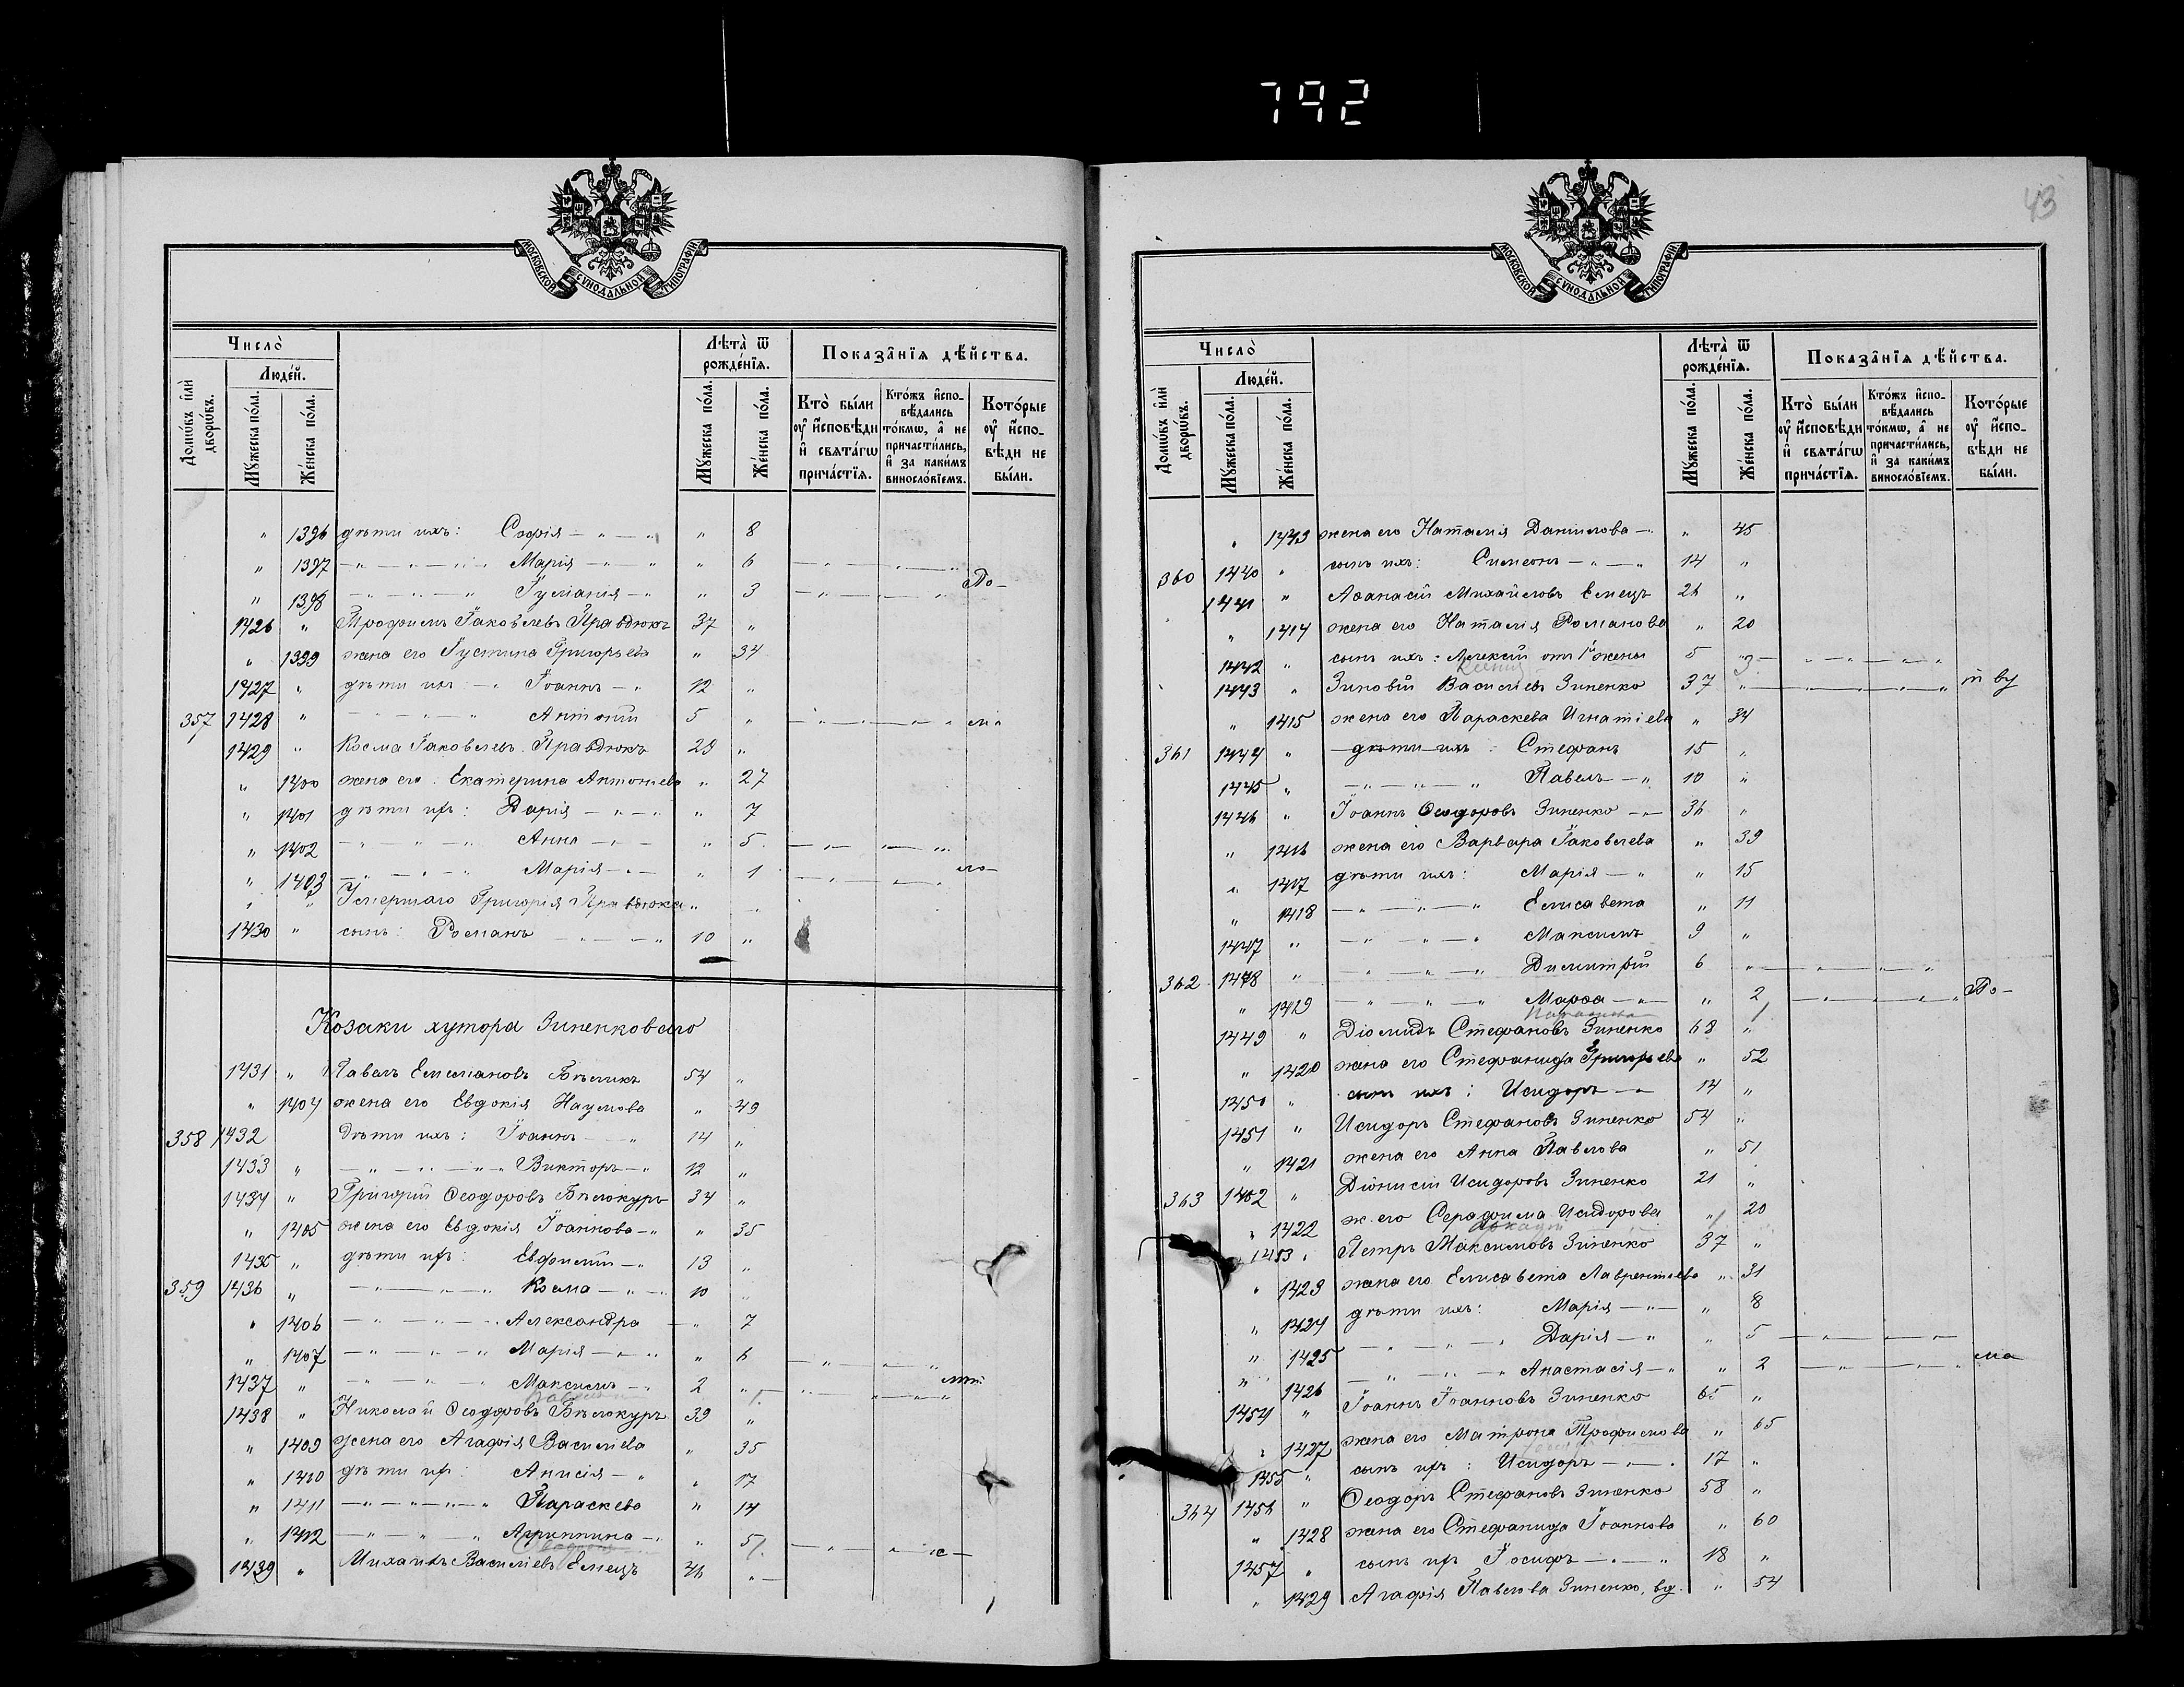 792
МОСКОВСКОЙ СѴНОДАЛЬНОЙ ТИПОГРАФІИ
Число̀
Людей.
Домѡвъ и҆лѝ дворѡвъ.
Мꙋжеска пола.
Женска пола.
Лѣта̀ ѿ рожденїѧ.
Мꙋжеска пола.
Женска пола.
Показанїѧ дѣйства.
Кто̀ были оу҆ и҆сповѣди и҆ свѧтагѡ причастїѧ.
Ктожъ и҆сповѣдались токмѡ, а҆ не причастились, и҆ за какимъ винословїемъ.
Которые оу҆ и҆сповѣди не были.
" 1396 дѣти ихъ: Софія — " — " " 8
" 1397 — " — " — " Марія — " — " " 6
" 1398 — " — " — " Іуліанія — " " 3 По-
1426 " Трофимъ Іаковлевъ Правдюкъ 37 "
" 1399 жена его Іустина Григорьева " 34
1427 " дѣти ихъ — " Іоаннъ — " 12 "
357 1428 " — " — " Антоній 5 "
1429 " Косма Іаковлевъ Правдюкъ 28 "
" 1400 жена его Екатерина Антоніева " 27
" 1401 дѣти ихъ: Дарія — " — " " 7
" 1402 — " — " — " Анна — " — " 5
" 1403 — " — " — " Марія — " — " 1
" " Умершаго Григорія Правдюка "
1430 " сынъ: Романъ — " — " 10 "
Козаки хутора Зиненковаго
1431 " Павелъ Емеліановъ Бѣликъ 54 "
" 1404 жена его Евдокія Наумова " 49
358 1432 дѣти ихъ: Іоаннъ — " 14 "
1433 " — " — " — " Викторъ — " 12 "
1434 " Григорій Ѳеодоровъ Бѣлокуръ 34 "
" 1405 жена его Евдокія Іоаннова — " " 35
1435 " дѣти ихъ: Евфимій — " 13 "
359 1436 " — " — " Косма — " — " 10 "
" 1406 — " — " — " Александра — " 7
" 1407 — " — " — " Марія — " — " " 6
1437 " — " — " — " Максимъ — " 2 "
1438 " Николай Ѳеодоровъ Бѣлокуръ 39 "
" 1409 жена его Агафія Василіева " 35
" 1410 дѣти ихъ: Анисія — " " 17
" 1411 — " — " — " Параскева " 14
" 1412 — " — " — " Агриппина — " " 5
1439 " Михаилъ Василіевъ Емецъ 46 "
43
МОСКОВСКОЙ СѴНОДАЛЬНОЙ ТИПОГРАФІИ
Число̀
Людей.
Домѡвъ и҆лѝ дворѡвъ.
Мꙋжеска пола.
Женска пола.
Лѣта̀ ѿ рожденїѧ.
Мꙋжеска пола.
Женска пола.
Показанїѧ дѣйства.
Кто̀ были оу҆ и҆сповѣди и҆ свѧтагѡ причастїѧ.
Ктожъ и҆сповѣдались токмѡ, а҆ не причастились, и҆ за какимъ винословїемъ.
Которые оу҆ и҆сповѣди не были.
" 1413 жена его Наталія Даніилова — " " 45
360 1440 " сынъ ихъ: Симеонъ — " — " 14 "
1441 " Аѳанасій Михайловъ Емецъ 26 "
" 1414 жена его Наталія Романова " 20
1442 " сынъ ихъ: Алексій отъ 1й жены 5 "
1443 " Зиновій Василіевъ Зиненко 37 "
" 1415 жена его Параскева Игнатіева " 34
361 1444 " дѣти ихъ: Стефанъ 15 "
1445 " — " — " — " Павелъ — " 10 "
1446 " Іоаннъ Ѳеодоровъ Зиненко — " 36 "
" 1416 жена его Варвара Іаковлева " 39
" 1417 дѣти ихъ: Марія — " " 15
" 1418 — " — " — " Елисавета " 11
1447 " — " — " — " Максимъ 9 "
362 1448 " " — " — " Димитрій 6 "
" 1419 — " — " — " Марѳа — " — " 2 По-
1449 " Діомидъ Стефановъ Зиненко 68 "
" 1420 жена его Стефанида Григорьева " 52
1450 " сынъ ихъ: Исидоръ — " 14 "
1451 " Исидоръ Стефановъ Зиненко 54 "
" 1421 жена его Анна Павлова " 51
363 1452 " Діонисій Исидоровъ Зиненко 21 "
" 1422 ж. его Серафима Исидорова " 20
1453 " Петръ Максимовъ Зиненко 37 "
" 1423 жена его Елисавета Лаврентіева " 31
" 1424 дѣти ихъ: Марія — " — " 8
" 1425 — " — " — " Дарія — " " 5
" 1426 — " — " — " Анастасія — " " 2
1454 " Іоаннъ Іоанновъ Зиненко 65 "
" 1427 жена его Матрона Трофимова " 65
1455 " сынъ ихъ: Исидоръ — " — " 17 "
364 1456 " Ѳеодоръ Стефановъ Зиненко 58 "
" 1428 жена его Стефанида Іоаннова " 60
1457 " сынъ ихъ Іосифъ — " — " 18 "
" 1429 Агафія Павлова Зиненко, вд. " 54